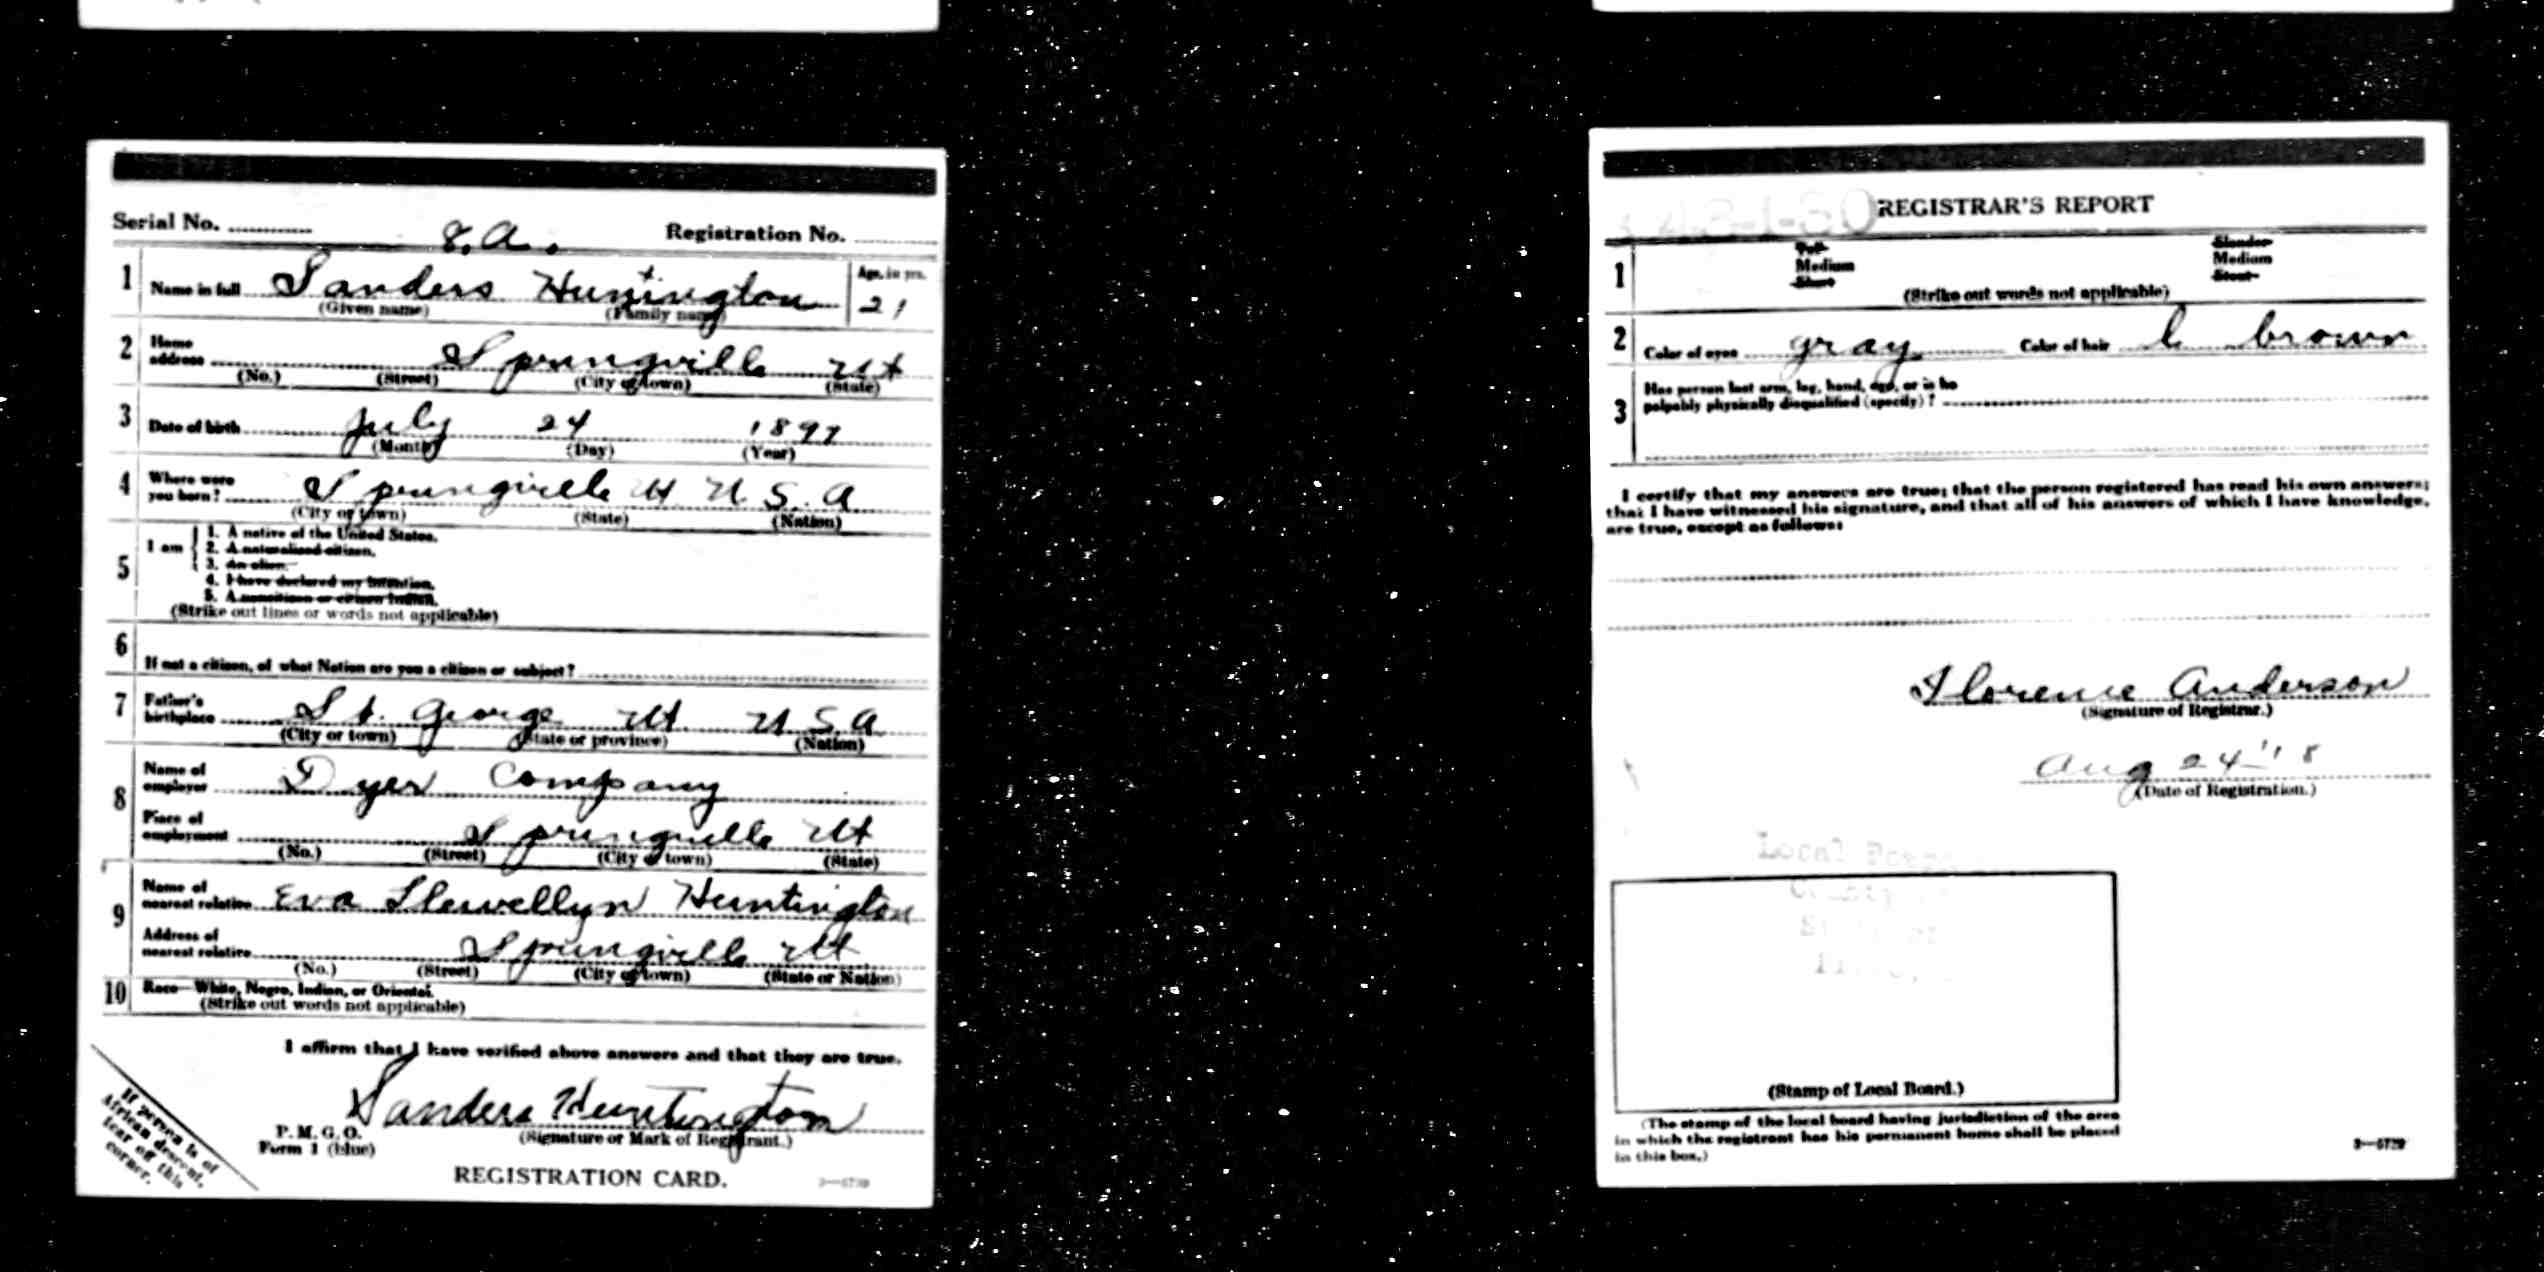 Serial No. ............ Registration No. ............
8. A.
1 Name in full Sanders Huntington Age, in yrs. 21
(Given name) (Family name)
2 Home address Springville Ut
(No.) (Street) (City or town) (State)
3 Date of birth July 24 1897
(Month) (Day) (Year)
4 Where were you born? Springville Ut U. S. A
(City or town) (State) (Nation)
5 I am
1. A native of the United States.
2. A naturalized citizen.
3. An alien.
4. I have declared my intention.
5. A noncitizen or citizen Indian.
(Strike out lines or words not applicable)
6 If not a citizen, of what Nation are you a citizen or subject?
7 Father's birthplace St. George Ut U S. A
(City or town) (State or province) (Nation)
8 Name of employer Dyer Company
Place of employment Springville Ut
(No.) (Street) (City or town) (State)
9 Name of nearest relative Eva Llewellyn Huntington
Address of nearest relative Springville Ut
(No.) (Street) (City or town) (State or Nation)
10 Race—White, Negro, Indian, or Oriental.
(Strike out words not applicable)
I affirm that I have verified above answers and that they are true.
Sanders Huntington
(Signature or Mark of Registrant.)
P. M. G. O.
Form 1 (blue)
REGISTRATION CARD.
If person is of
African descent,
tear off this
corner.
REGISTRAR'S REPORT
1 Tall Slender
Medium Medium
Short Stout
(Strike out words not applicable)
2 Color of eyes gray Color of hair l brown
3 Has person lost arm, leg, hand, eye, or is he
palpably physically disqualified (specify)?
I certify that my answers are true; that the person registered has read his own answers;
that I have witnessed his signature, and that all of his answers of which I have knowledge,
are true, except as follows:
Florence Anderson
(Signature of Registrar.)
Aug 24 '18
(Date of Registration.)
Local Board
(Stamp of Local Board.)
(The stamp of the local board having jurisdiction of the area
in which the registrant has his permanent home shall be placed
in this box.)